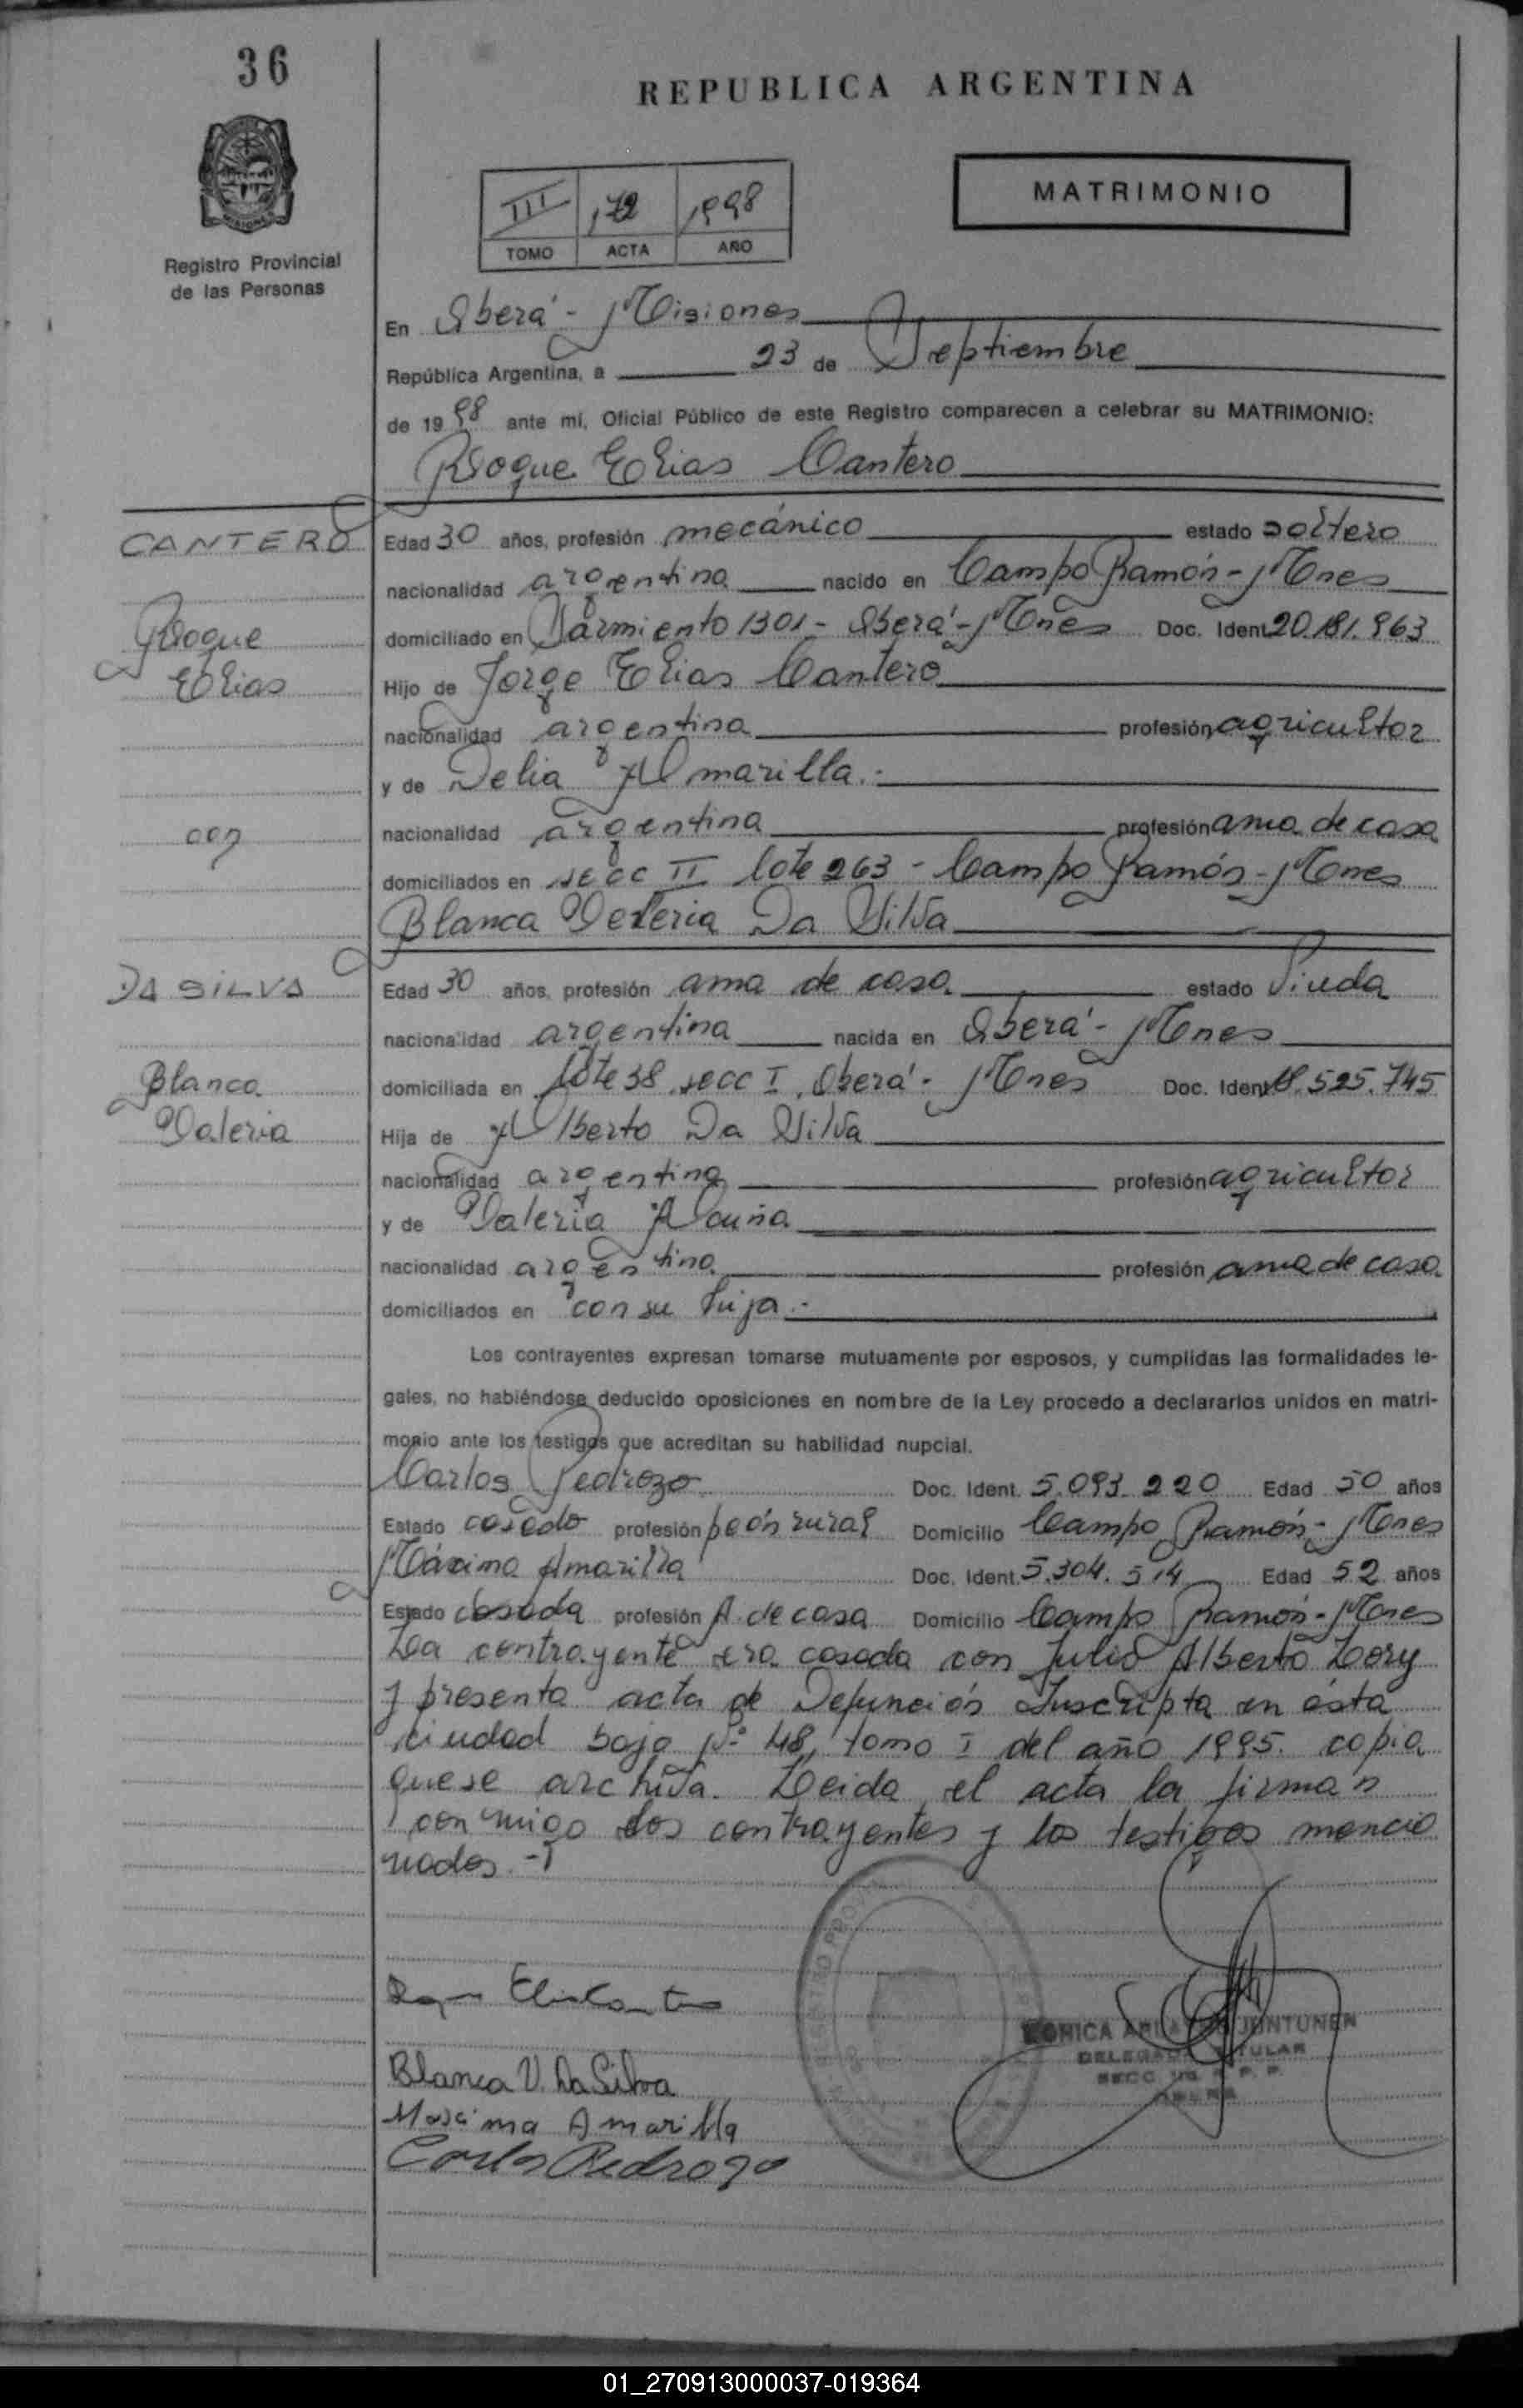 36
REPUBLICA ARGENTINA
MATRIMONIO
III 172 1998
TOMO ACTA AÑO
Registro Provincial
de las Personas
En Oberá - Misiones
República Argentina, a 23 de Septiembre
de 19 98 ante mí, Oficial Público de este Registro comparecen a celebrar su MATRIMONIO:
Roque Elias Cantero
CANTERO
Roque
Elias
con
Edad 30 años, profesión mecánico estado soltero
nacionalidad argentina nacido en Campo Ramón - Mnes
domiciliado en Sarmiento 1301 - Oberá - Mnes Doc. Ident. 20.181.963
Hijo de Jorge Elias Cantero
nacionalidad argentina profesión agricultor
y de Delia Amarilla.-
nacionalidad argentina profesión ama de casa
domiciliados en secc II lote 263 - Campo Ramón - Mnes
Blanca Valeria Da Silva
DA SILVA
Blanca
Valeria
Edad 30 años, profesión ama de casa estado Viuda
nacionalidad argentina nacida en Oberá - Mnes
domiciliada en lote 38 secc I, Oberá - Mnes Doc. Ident. 525.745
Hija de Alberto Da Silva
nacionalidad argentina profesión agricultor
y de Valeria Acuña
nacionalidad argentina profesión ama de casa
domiciliados en con su hija.-
Los contrayentes expresan tomarse mutuamente por esposos, y cumplidas las formalidades le-
gales, no habiéndose deducido oposiciones en nombre de la Ley procedo a declararlos unidos en matri-
monio ante los testigos que acreditan su habilidad nupcial.
Carlos Pedrozo Doc. Ident. 5.093.220 Edad 50 años
Estado casado profesión peón rural Domicilio Campo Ramón - Mnes
Máxima Amarilla Doc. Ident. 5.304.514 Edad 52 años
Estado casada profesión A. de casa Domicilio Campo Ramón - Mnes
La contrayente era casada con Julio Alberto Lory
y presenta acta de Defunción Inscripta en ésta
ciudad bajo Nº 48, tomo I del año 1995. copia
que se archiva. Leida el acta la firman
conmigo los contrayentes y los testigos mencio
nados.-
Roque Elias Cantero
Blanca V. Da Silva
Maxima Amarilla
Carlos Pedrozo
JUNTUNEN
01_270913000037-019364